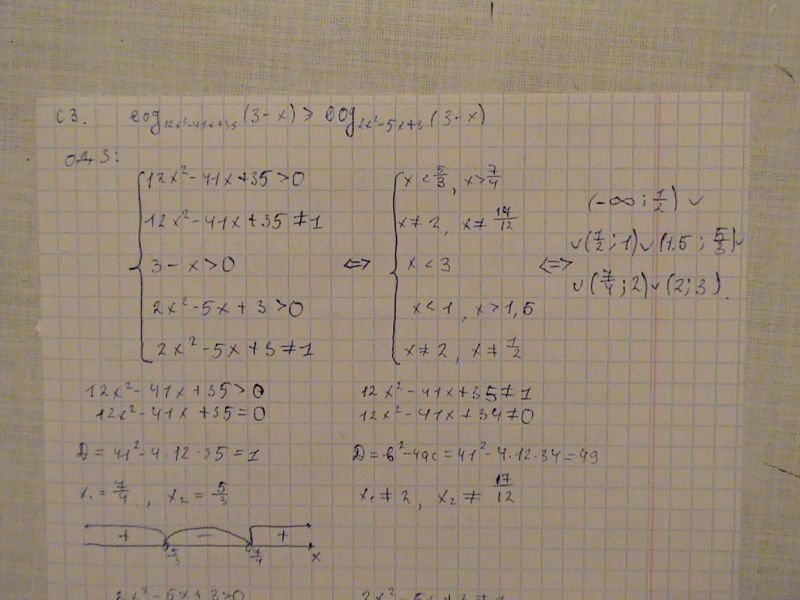 C3. log_{12x²-41x+35}(3-x) > log_{2x²-5x+3}(3-x)
ОДЗ:
{ 12x²-41x+35>0
12x²-41x+35≠1
3-x>0
2x²-5x+3>0
2x²-5x+3≠1
⇔
{ x<5/3, x>7/4
x≠2, x≠17/12
x<3
x<1, x>1,5
x≠2, x≠1/2
⇔
(-∞; 1/2) ∪
∪(1/2; 1)∪(1,5; 5/3)∪
∪(7/4; 2)∪(2; 3).
12x²-41x+35>0
12x²-41x+35=0
D=41²-4·12·35=1
x₁=7/4, x₂=5/3
+ - +
5/3 7/4 x
12x²-41x+35≠1
12x²-41x+34≠0
D=b²-4ac=41²-4·12·34=49
x₁≠2, x₂≠17/12
2x²-5x+3>0
2x²-5x+3≠1